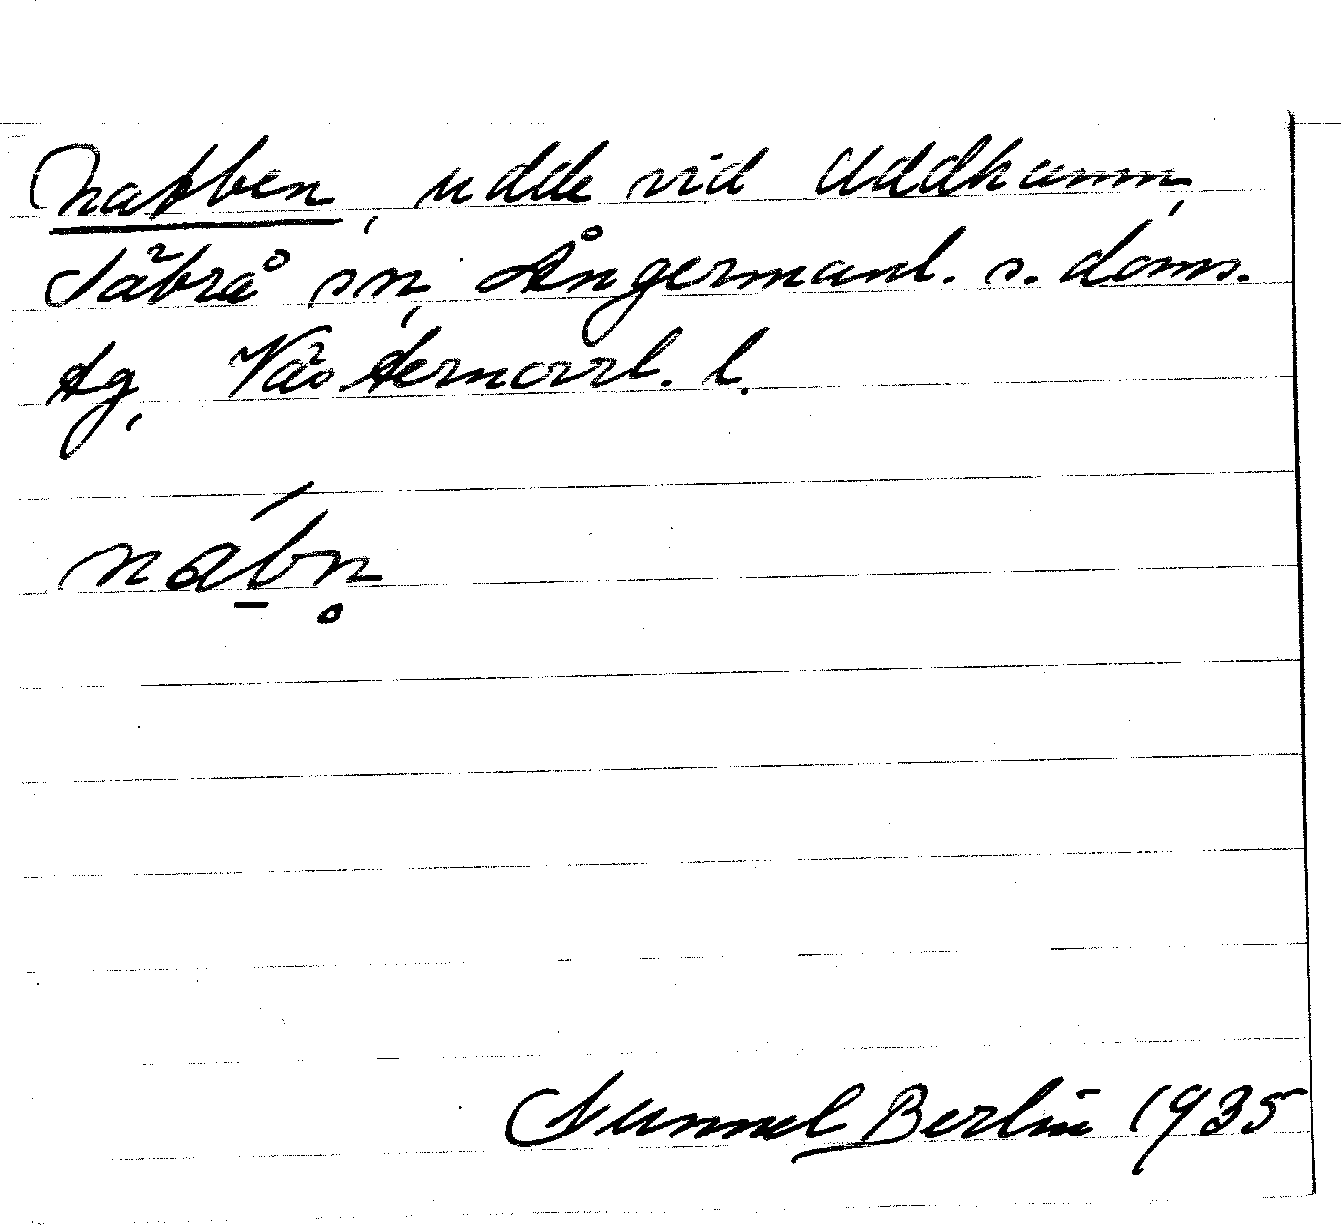 Nabben, udde vid Uddhamn,
Säbrå sn, Ångermanl. s. doms.
tg, Västernorrl. l.
nábn̥
Gunnel Berlin 1935